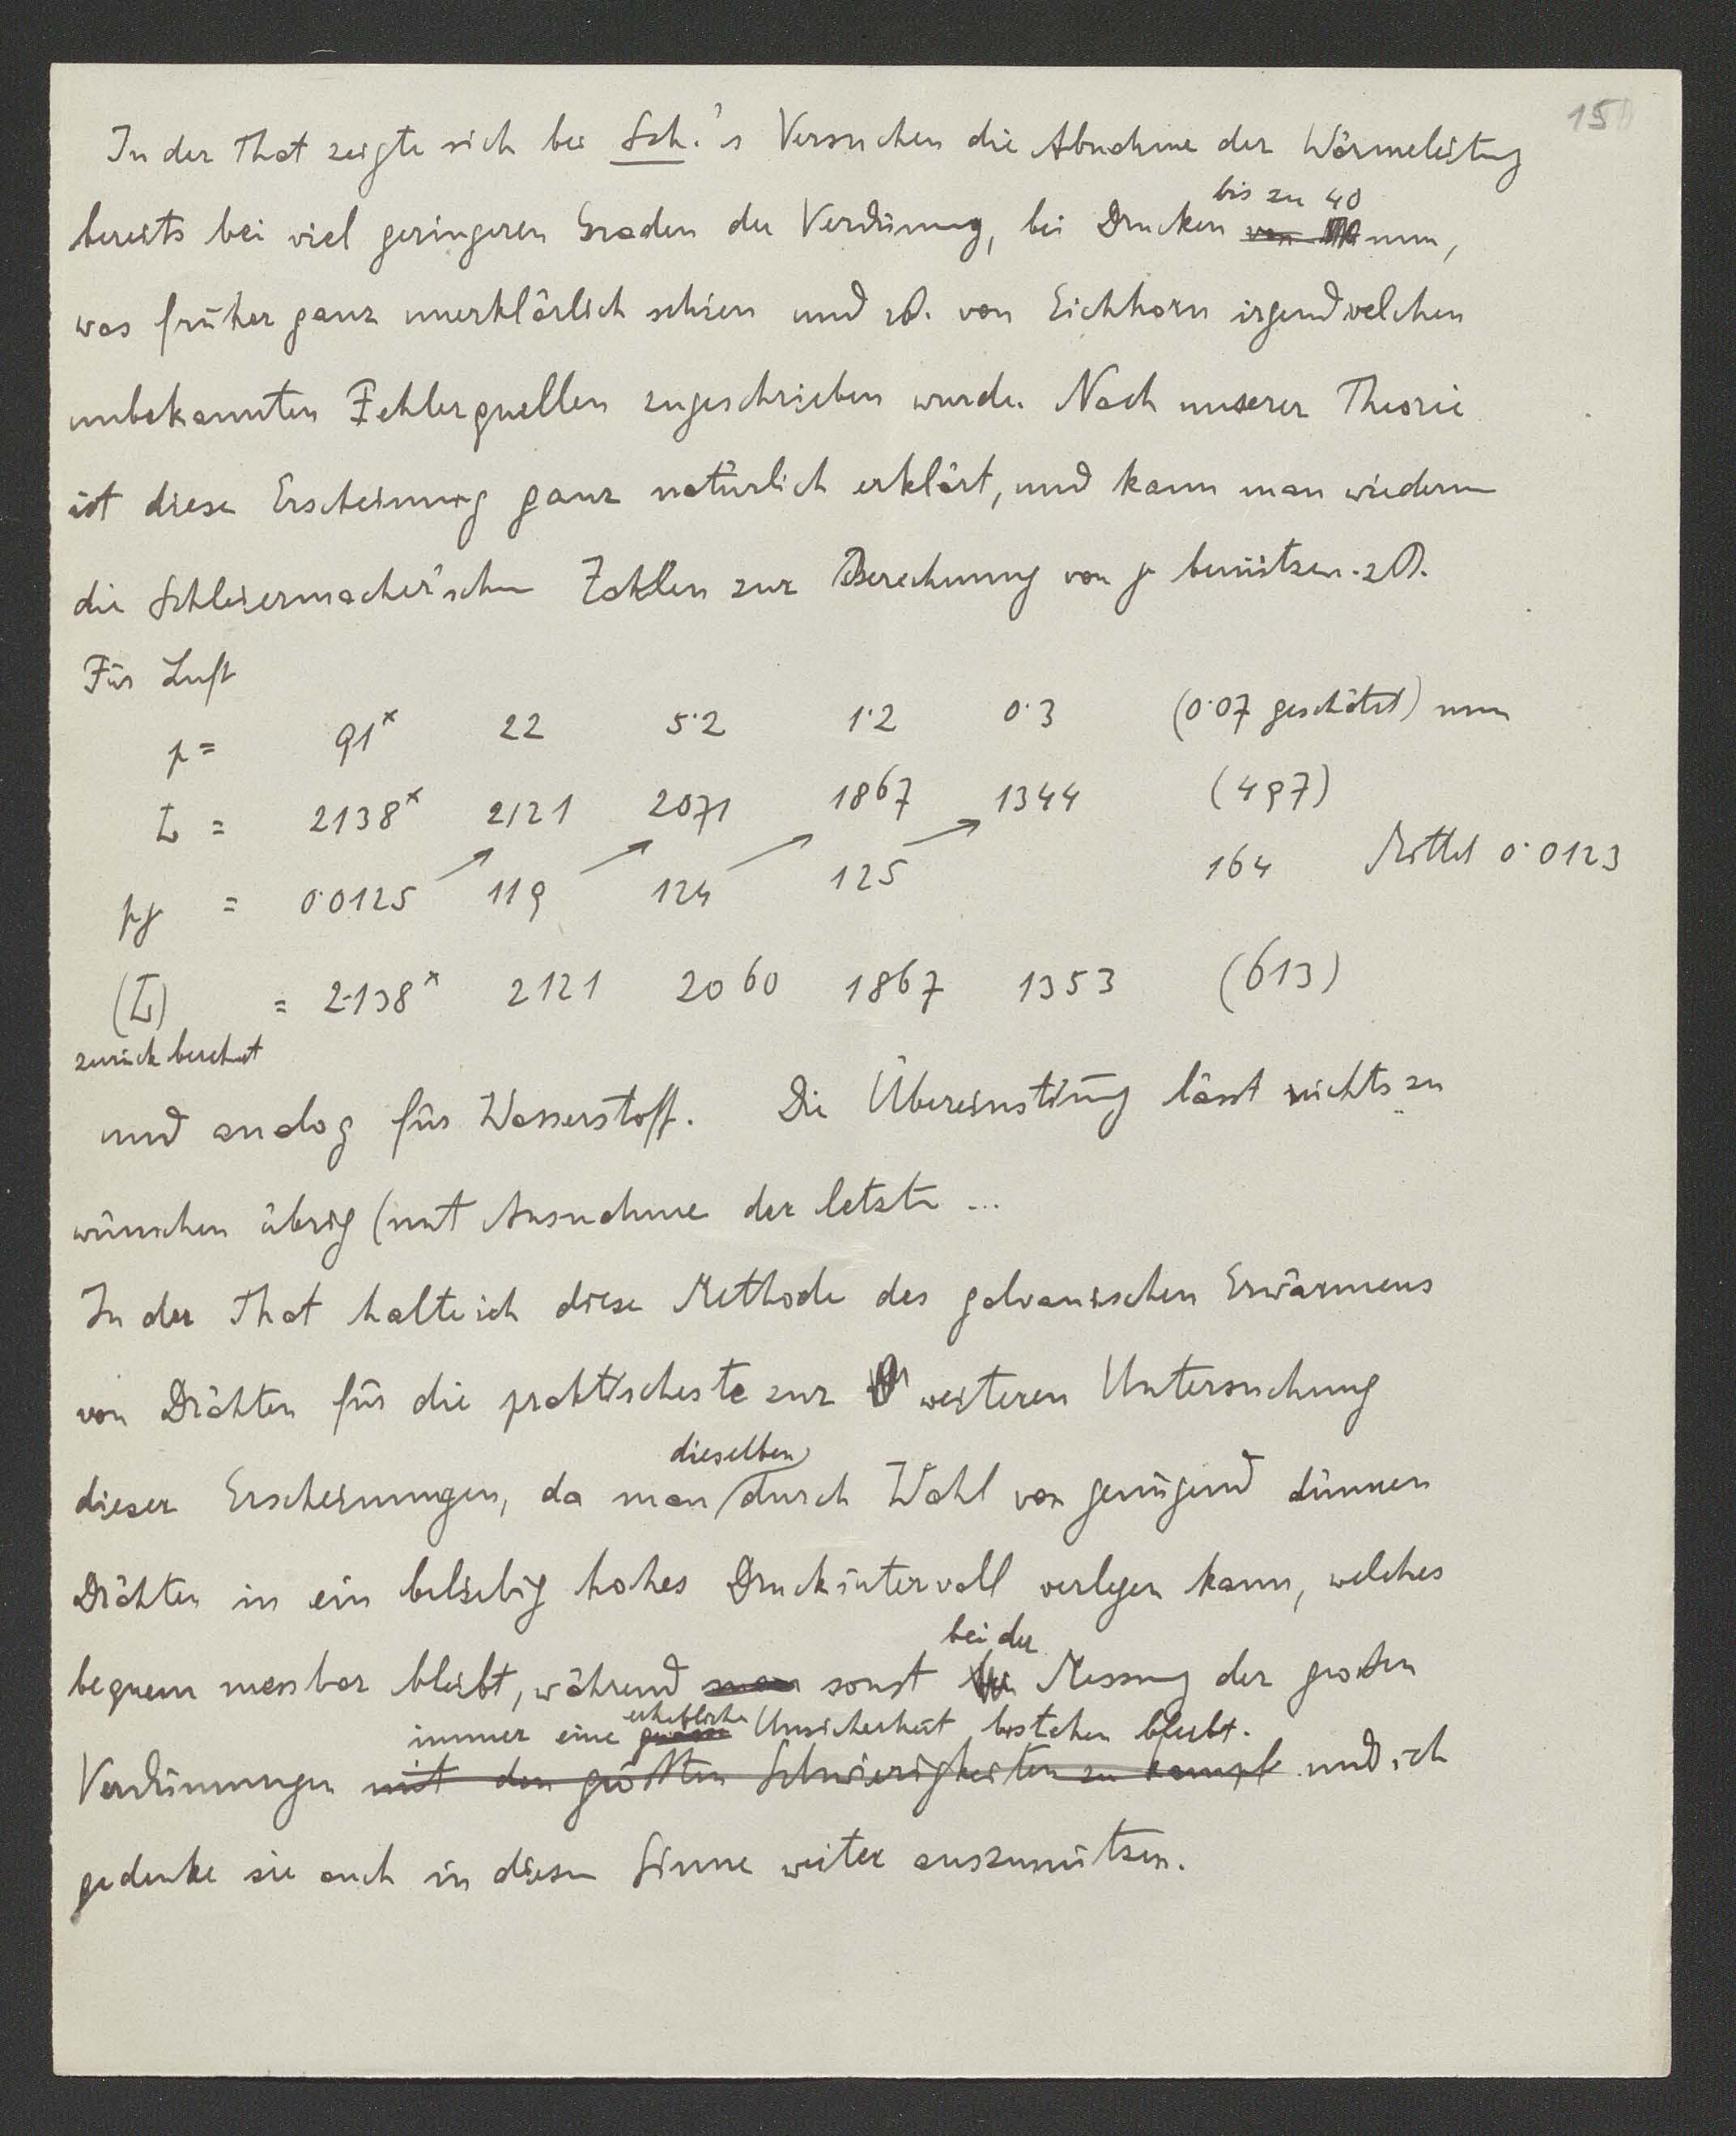 15
In der That zeigte sich bei Sch.'s Versuchen die Abnahme der Wärmeleitung
bis zu 40
bereits bei viel geringeren Graden der Verdünnung, bei Drucken von mm,
was früher ganz unerklärlich schien und zB. von Eichhorn irgendwelchen
unbekannten Fehlerquellen zugeschrieben wurde. Nach unserer Theorie
ist diese Erscheinung ganz natürlich erklärt, und kann man wiederum
die Schleiermacher'schen Zahlen zur Berechnung von γ benützen. zB.
Für Luft
p = 91x 22 5·2 1·2 0·3 (0·07 geschätzt) mm
L = 2138x 2121 2071 1867 1344 (497)
pγ = 0·0125 119 124 125 164 Mittel 0·0123
(L) = 2138x 2121 2060 1867 1353 (613)
zurückberechnet
und analog für Wasserstoff. Die Übereinstimmung lässt nichts zu
wünschen übrig (mit Ausnahme der letzten ...
In der That halte ich diese Methode des galvanischen Erwärmens
von Drähten für die praktischeste zur weiteren Untersuchung
dieselben
dieser Erscheinungen, da man durch Wahl von genügend dünnen
Drähten in ein beliebig hohes Druckintervall verlegen kann, welches
bei der
bequem messbar bleibt, während man sonst Messung der grossen
immer eine erhebliche Unsicherheit bestehen bleibt.
Verdünnungen mit den größten Schwierigkeiten zu kämpf und ich
gedenke sie auch in diesem Sinne weiter auszunützen.